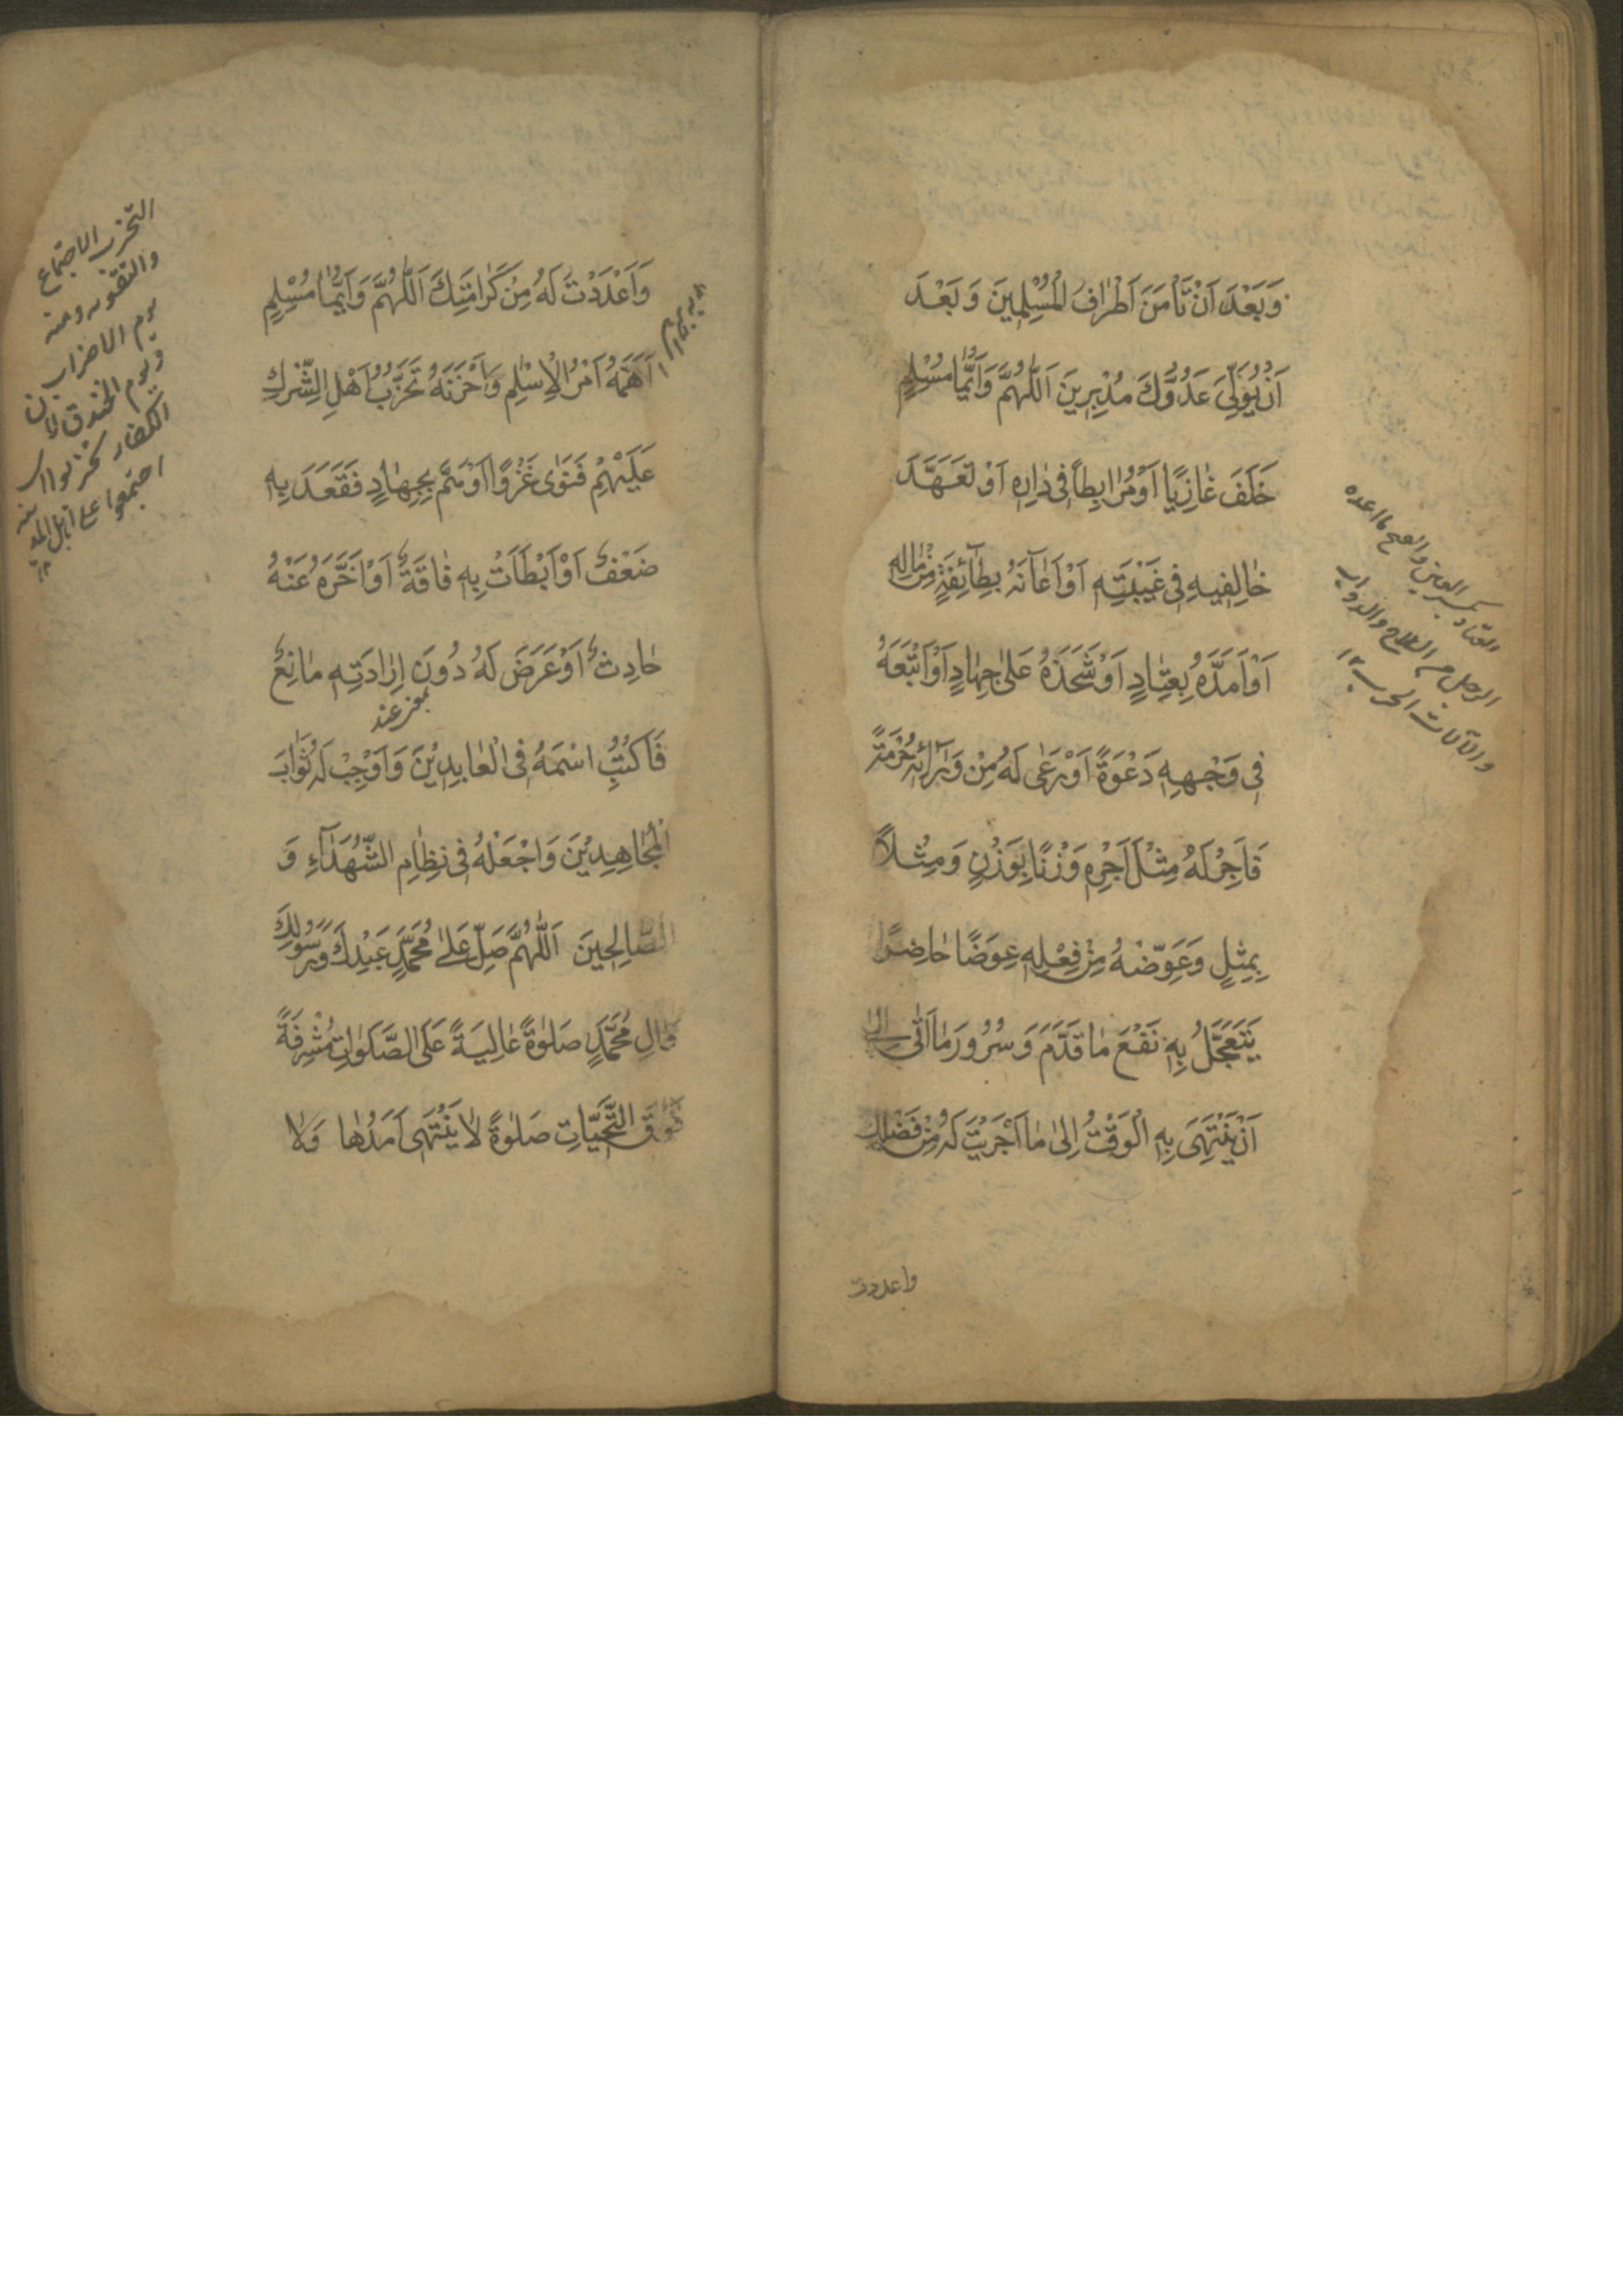 وَبَعْدَ اَنْ تَأْمَنَ اَطْرٰافُ الْمُسْلِمِينَ وَ بَعْدَ
اَنْ يُوَلِّىَ عَدُوُّكَ مُدْبِرِينَ اَللّٰهُمَّ وَاَيُّمٰا مُسْلِمٍ
خَلَفَ غٰازِيًا اَوْ مُرٰابِطًا فِى دٰارِهِ اَوْ تَعَهَّدَ
خٰالِفِيهِ فِى غَيْبَتِهِ اَوْ اَعٰانَهُ بِطٰآئِفَةٍ مِنْ مٰالِهِ
اَوْ اَمَدَّهُ بِعِتٰادٍ اَوْ شَحَذَهُ عَلىٰ جِهٰادٍ اَوْ اَتْبَعَهُ
فِى وَجْهِهِ دَعْوَةً اَوْ رَعٰى لَهُ مِنْ وَرٰآئِهِ حُرْمَةً
فَاَجْرِ لَهُ مِثْلَ اَجْرِهِ وَزْنًا بِوَزْنٍ وَ مِثْلاً
بِمِثْلٍ وَعَوِّضْهُ مِنْ فِعْلِهِ عِوَضًا حٰاضِرًا
يَتَعَجَّلُ بِهِ نَفْعَ مٰا قَدَّمَ وَ سُرُورَ مٰا اَتٰى اِلىٰ
اَنْ يَنْتَهِىَ بِهِ الْوَقْتُ اِلىٰ مٰا اَجْرَيْتَ لَهُ مِنْ فَضْلِكَ
واعددت
العتاد بكسر العين والصح ما اعده
الرجل من السلاح والدواب
والآلات الحرب ١٢
وَاَعْدَدْتَ لَهُ مِنْ كَرٰامَتِكَ اَللّٰهُمَّ وَاَيُّمٰا مُسْلِمٍ
اَهَمَّهُ اَمْرُ الْاِسْلٰمِ وَ اَحْزَنَهُ تَحَزُّبُ اَهْلِ الشِّرْكِ
عَلَيْهِمْ فَنَوٰى غَزْوًا اَوْ هَمَّ بِجِهٰادٍ فَقَعَدَ بِهِ
ضَعْفٌ اَوْ اَبْطَاَتْ بِهِ فٰاقَةٌ اَوْ اَخَّرَهُ عَنْهُ
حٰادِثٌ اَوْ عَرَضَ لَهُ دُونَ اِرٰادَتِهِ مٰانِعٌ
بمعنى عند
فَاكْتُبِ اسْمَهُ فِى الْعٰابِدِيْنَ وَ اَوْجِبْ لَهُ ثَوٰابَ
الْمُجٰاهِدِيْنَ وَاجْعَلْهُ فِى نِظٰامِ الشُّهَدٰآءِ وَ
الصّٰالِحِينَ اَللّٰهُمَّ صَلِّ عَلىٰ مُحَمَّدٍ عَبْدِكَ وَ رَسُولِكَ
وَاٰلِ مُحَمَّدٍ صَلٰوةً عٰالِيَةً عَلَى الصَّلَوٰاتِ مُشْرِفَةً
فَوْقَ التَّحِيّٰاتِ صَلٰوةً لٰا يَنْتَهِى اَمَدُهٰا وَلٰا
التحزب الاجتماع
ومنه
يوم الاحزاب
ويوم الخندق لان
الكفار تحزبوا اى
اجتمعوا على اهل المدينة
١٢